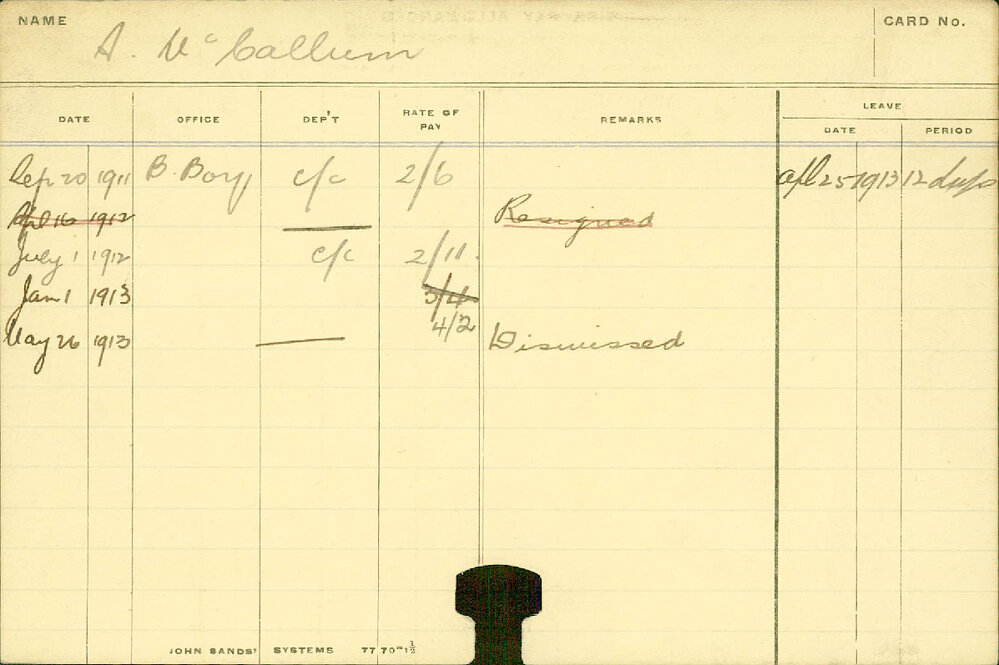 NAME
CARD No.
A. McCallum
LEAVE
DATE OFFICE DEP'T RATE OF PAY REMARKS DATE PERIOD
Sep 20 1911 B. Boy c/c 2/6 apl 25 1913 12 days
Apl 16 1912 Resigned
July 1 1912 c/c 2/11.
Jan 1 1913 3/4
4/2
May 26 1913 Dismissed
JOHN SANDS' SYSTEMS 77 70m 1½